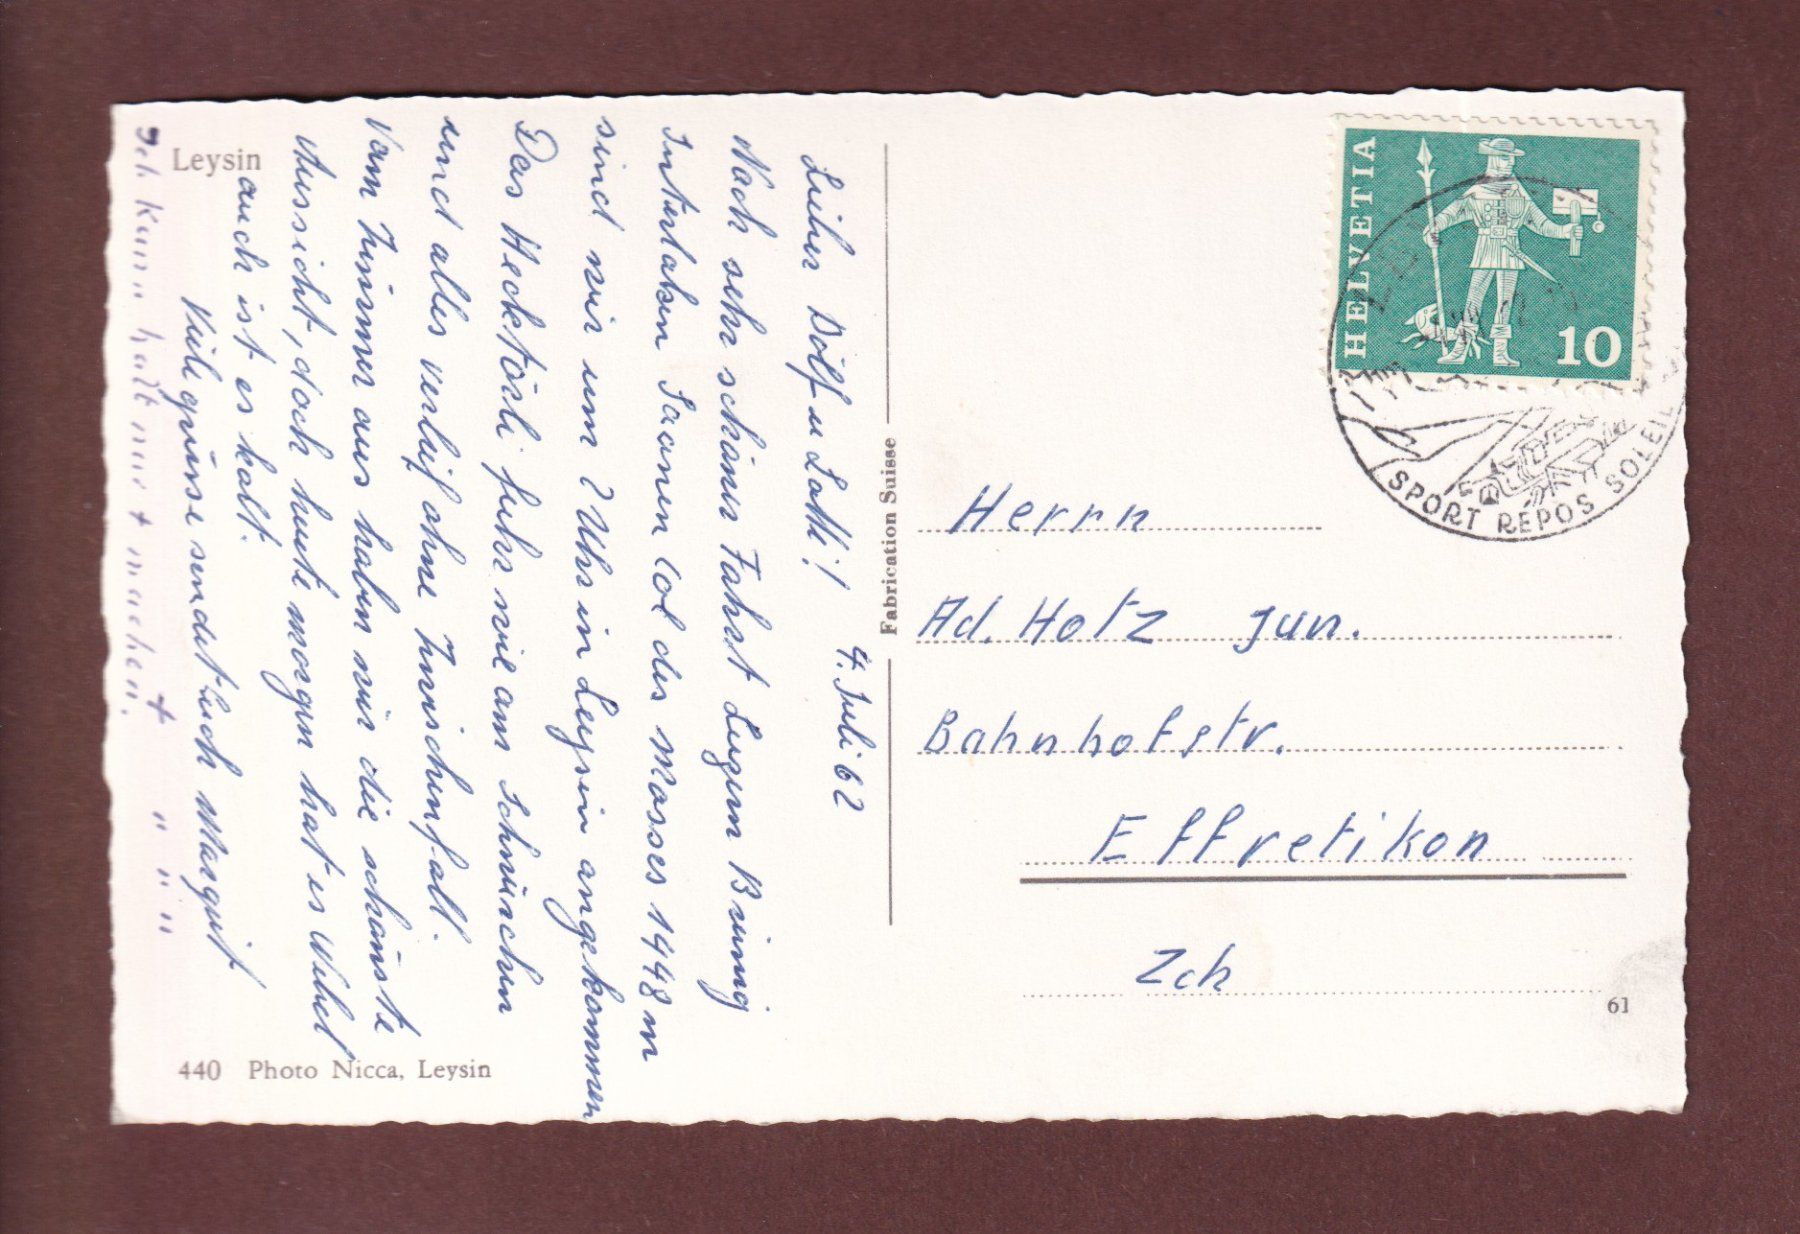 Leysin
4. Juli 62
Lieber Dölf u Lotti!
Nach sehr schöner Fahrt Luzern Brünig
Interlaken Saanen Col des Mosses 1448 m
sind wir um 2 Uhr in Leysin angekommen
Das Hecktörli fuhr wie am Schnürchen
und alles verlief ohne Zwischenfall.
Vom Zimmer aus haben wir die schönste
Aussicht, doch heute morgen hat es Nebel
auch ist es kalt.
Viele grüsse sendet Euch Margrit
Ich kann halt nur + machen.
+ " " "
440 Photo Nicca, Leysin
Fabrication Suisse
HELVETIA
10
SPORT REPOS SOLEIL
Herrn
Ad. Hotz jun.
Bahnhofstr.
Effretikon
Zch
61